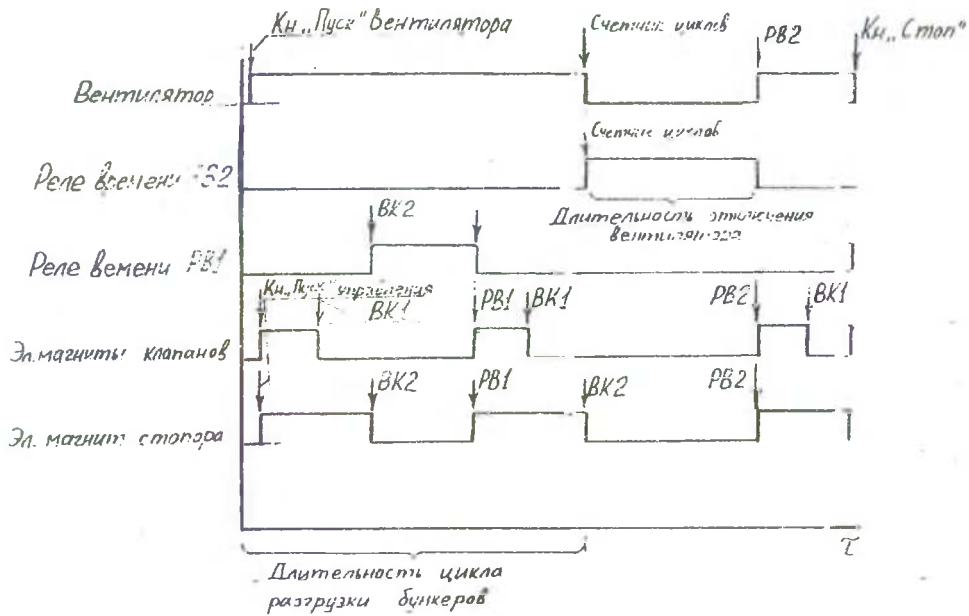 Кн „Пуск" вентилятора
Счетчик циклов
РВ2
Кн „Стоп"
Вентилятор
Счетчик циклов
Реле времени
Длительность отключения
вентилятора
ВК2
Реле вемени РВ1
Кн „Пуск" управления
ВК1
РВ1
ВК1
РВ2
ВК1
Эл.магниты клапанов
ВК2
РВ1
ВК2
РВ2
Эл.магнит стопора
τ
Длительность цикла
разгрузки бункеров